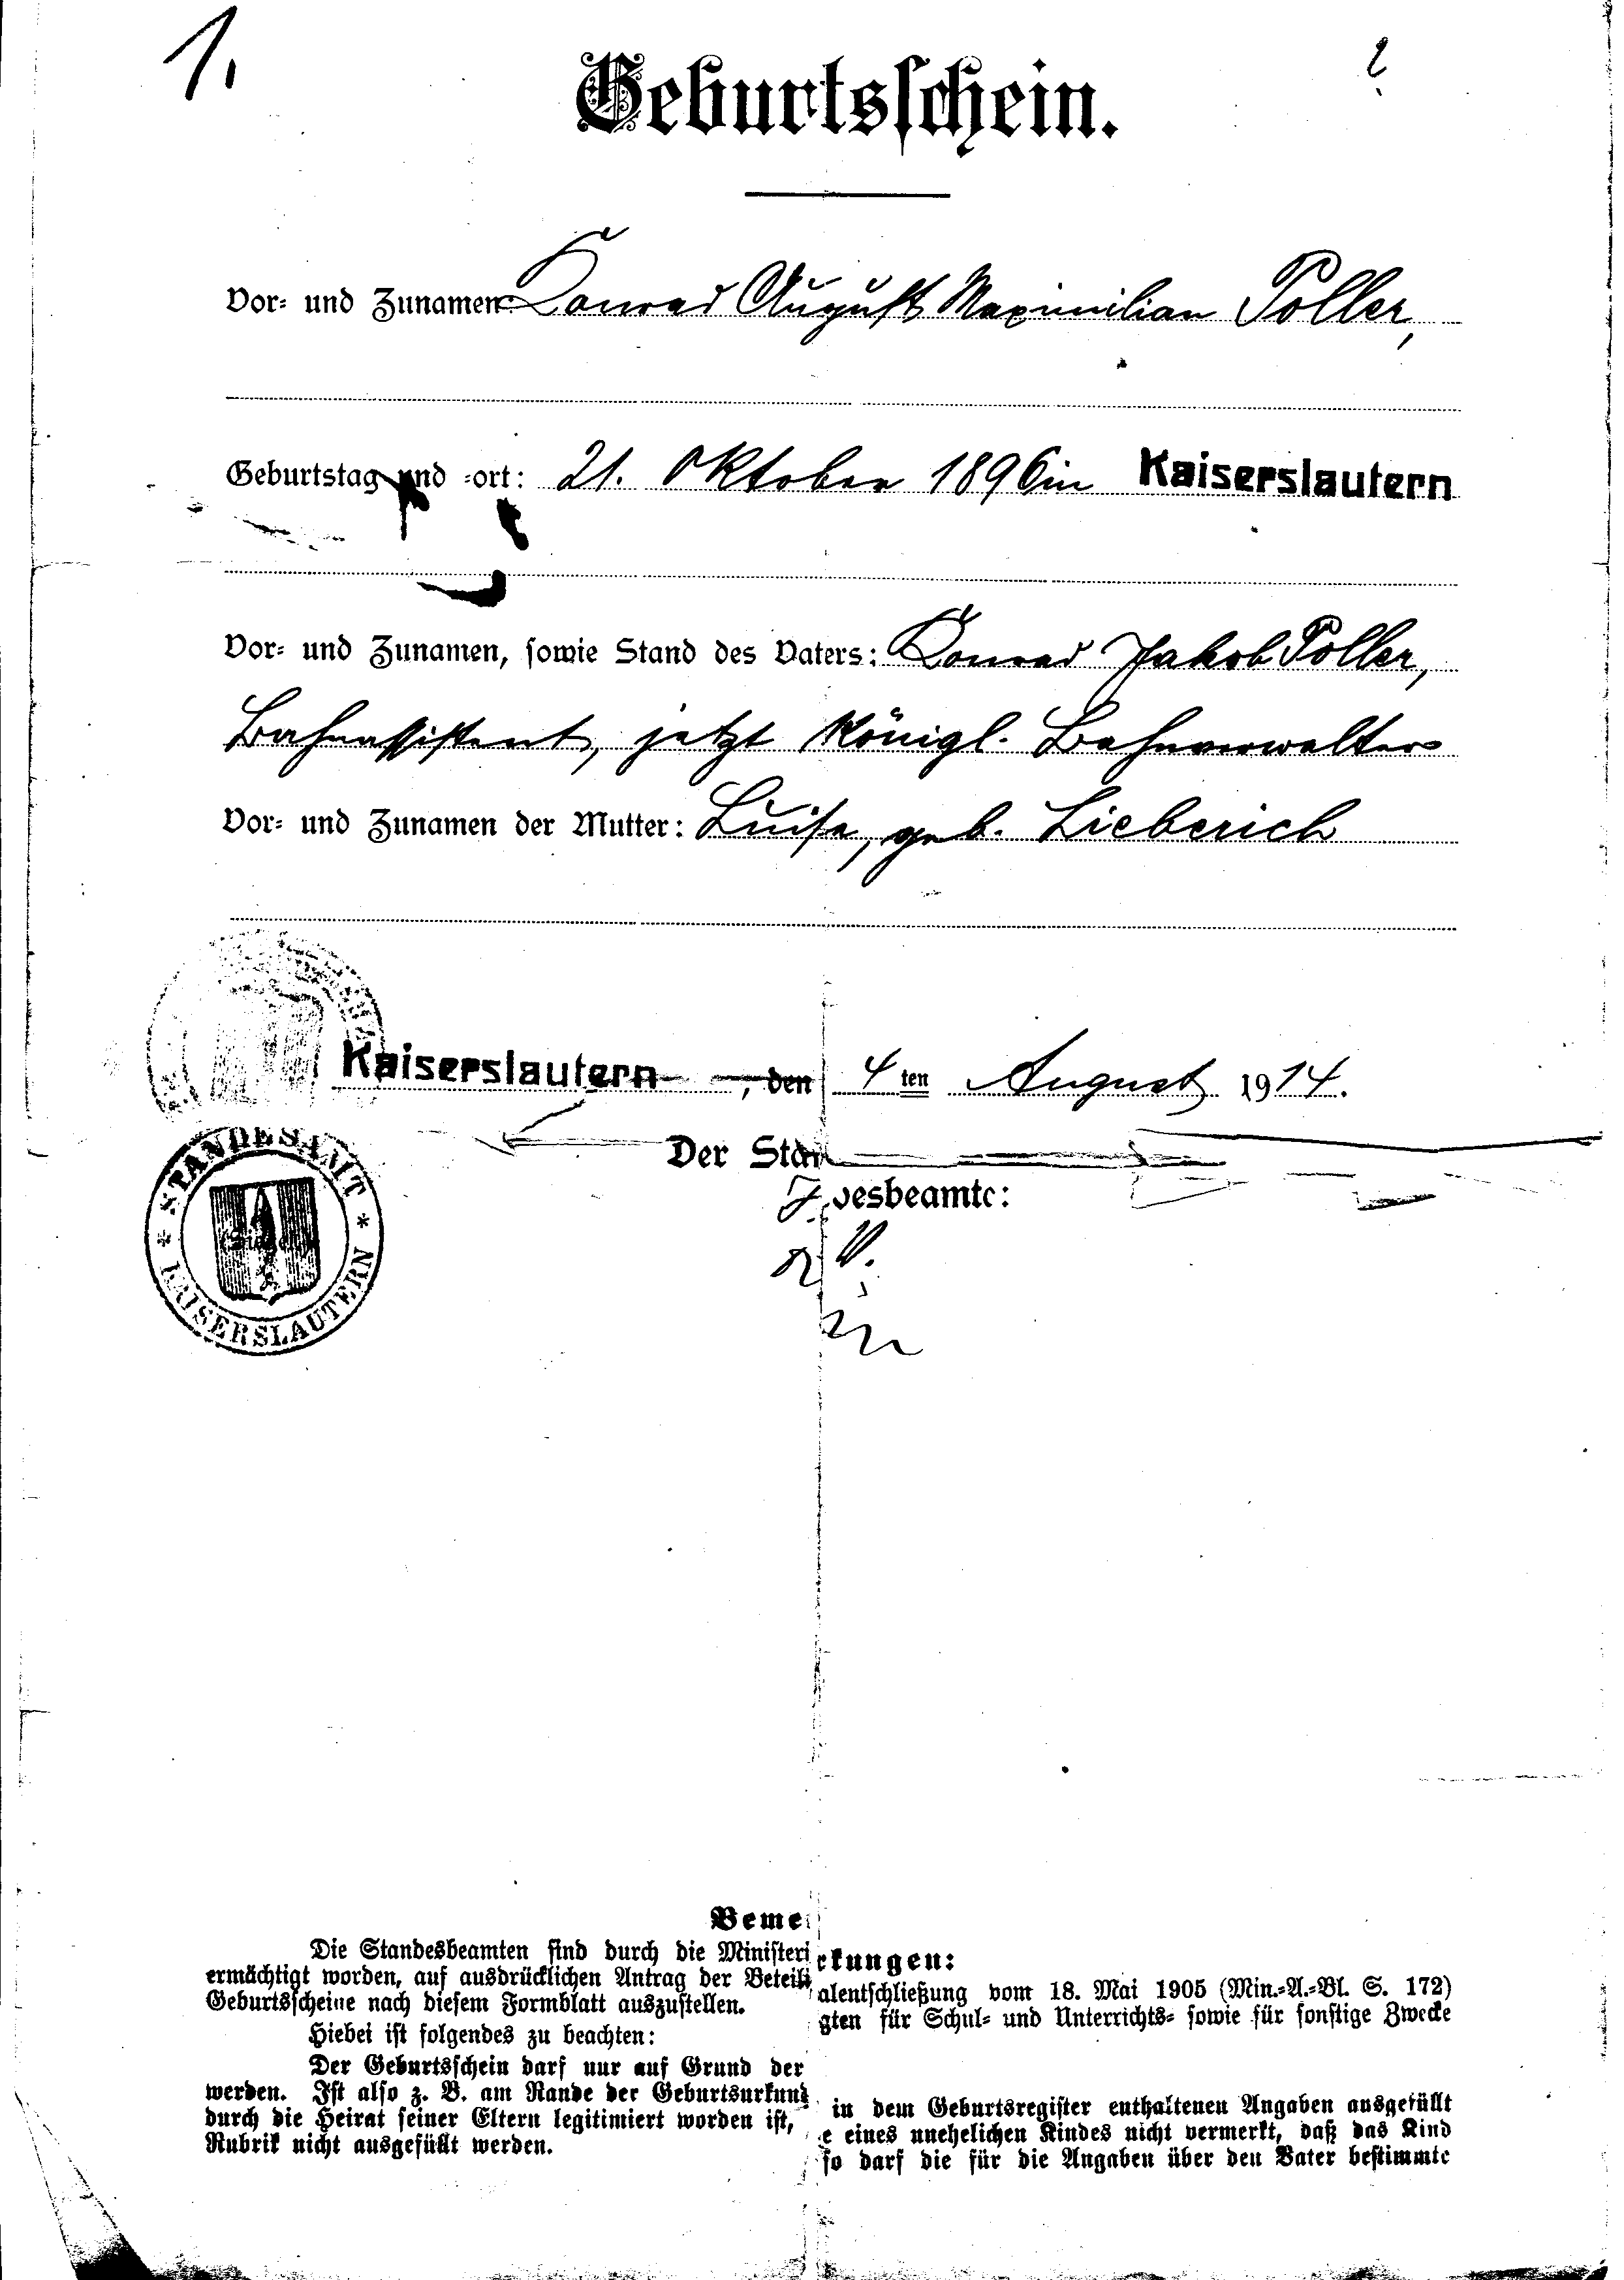 1.
Geburtsschein.
Vor- und Zunamen: Konrad August Maximilian Poller,
Geburtstag und -ort: 21. Oktober 1896 in Kaiserslautern
Vor- und Zunamen, sowie Stand des Vaters: Konrad Jakob Poller,
Bahnassistent, jetzt Königl. Bahnverwalter
Vor- und Zunamen der Mutter: Luise, geb. Lieberich
Kaiserslautern, den 4ten August 1914.
Der Standesbeamte:
J. V.
STANDESAMT * KAISERSLAUTERN *
Bemerkungen:
Die Standesbeamten sind durch die Ministerialentschließung vom 18. Mai 1905 (Min.-A.-Bl. S. 172)
ermächtigt worden, auf ausdrücklichen Antrag der Beteiligten für Schul- und Unterrichts- sowie für sonstige Zwecke
Geburtsscheine nach diesem Formblatt auszustellen.
Hiebei ist folgendes zu beachten:
Der Geburtsschein darf nur auf Grund der in dem Geburtsregister enthaltenen Angaben ausgefüllt
werden. Ist also z. B. am Rande der Geburtsurkunde eines unehelichen Kindes nicht vermerkt, daß das Kind
durch die Heirat seiner Eltern legitimiert worden ist, so darf die für die Angaben über den Vater bestimmte
Rubrik nicht ausgefüllt werden.